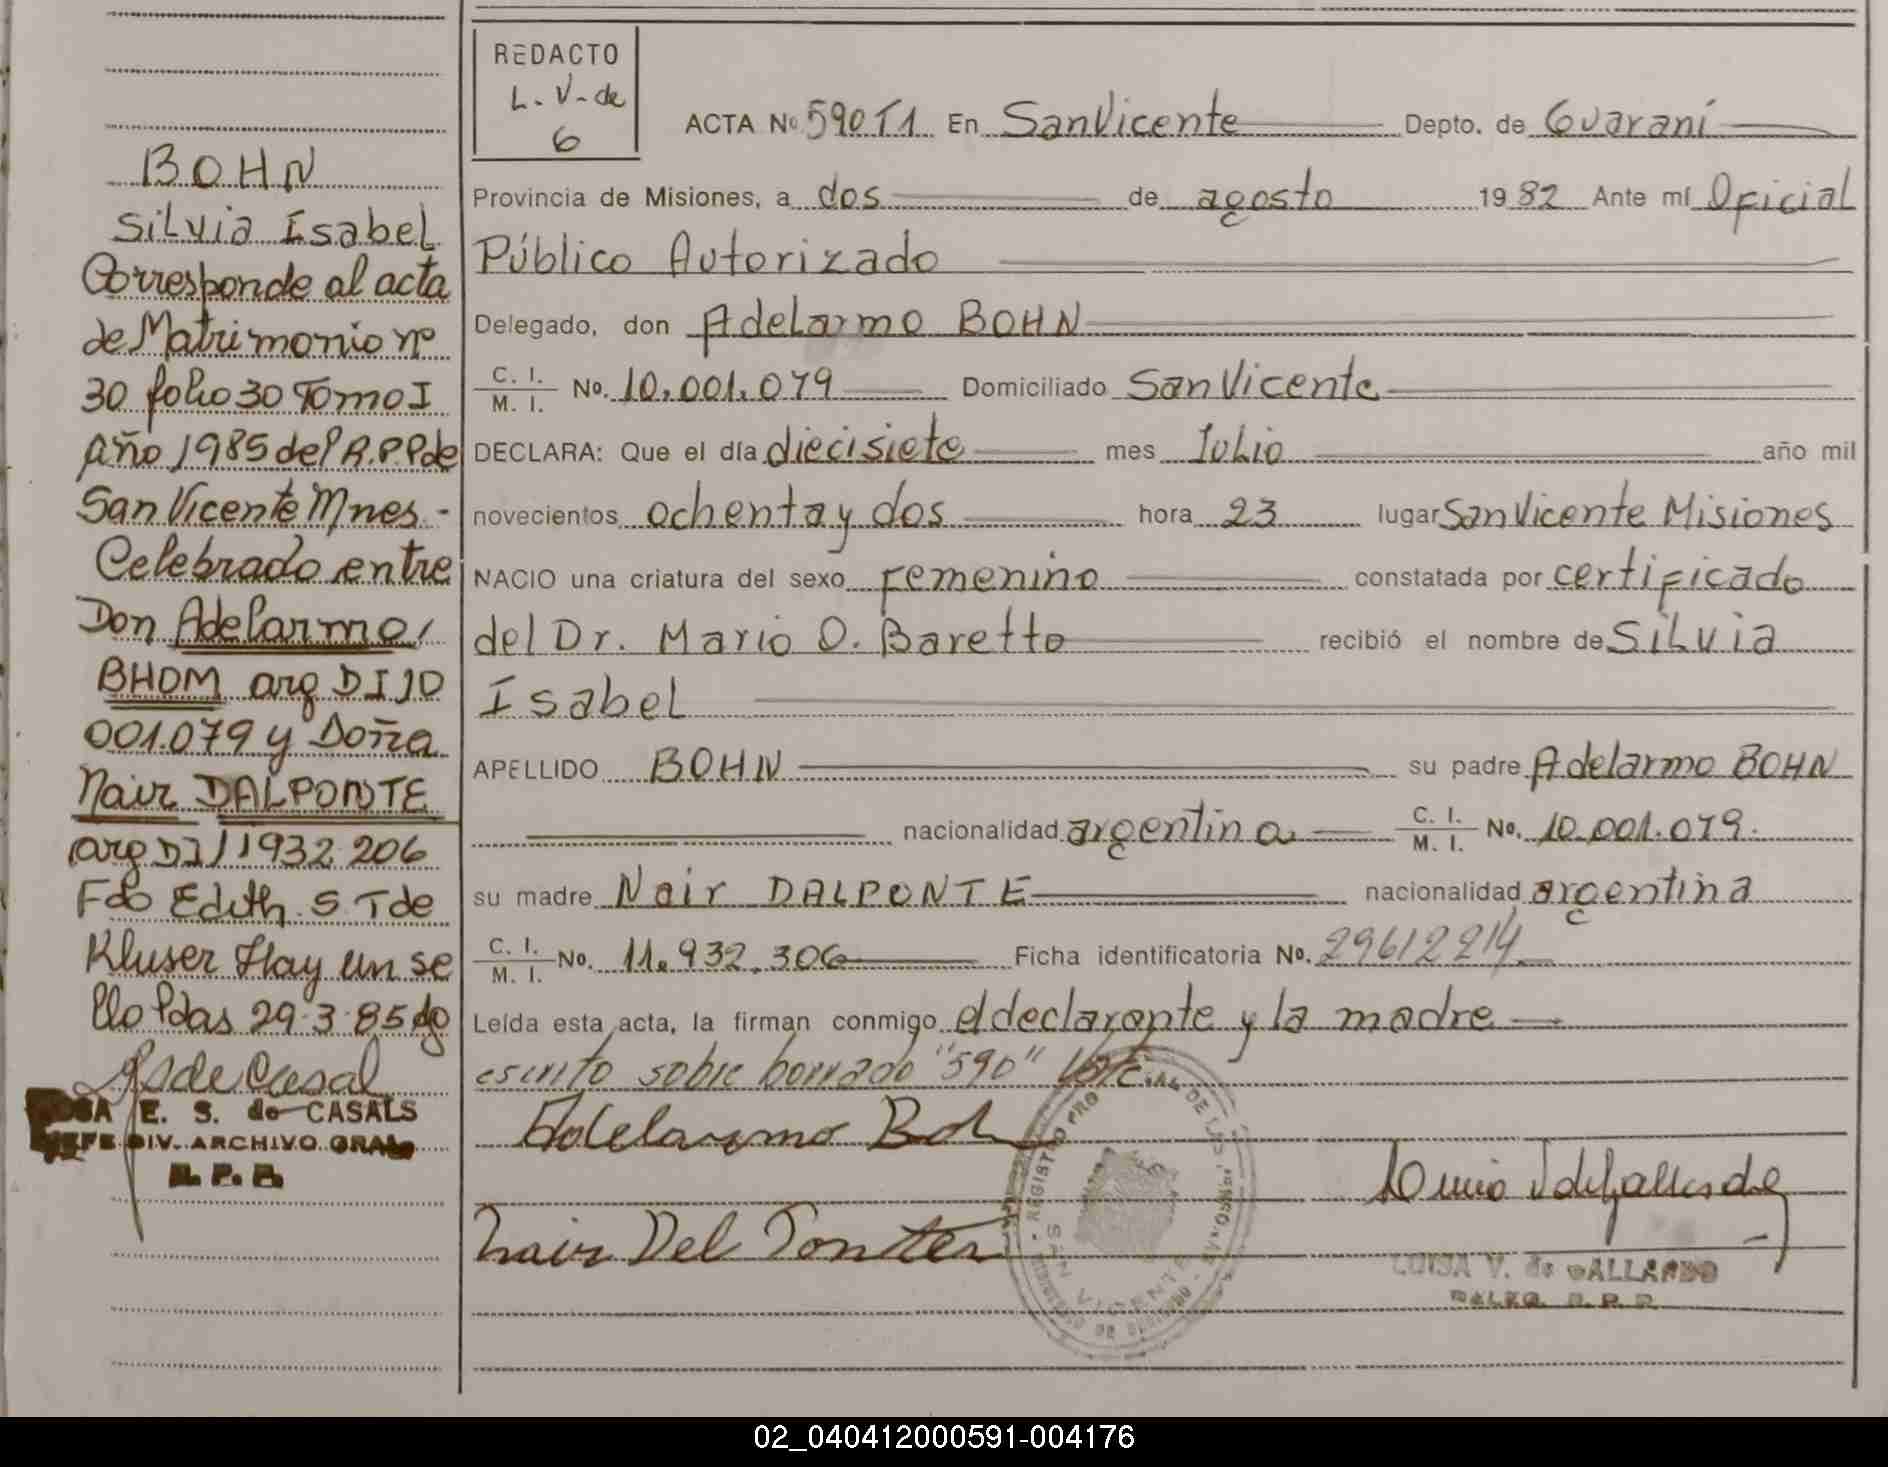 BOHN
Silvia Isabel
Corresponde al acta
de Matrimonio nº
30 folio 30 Tomo I
Año 1985 del R.P.P de
San Vicente Mnes -
Celebrado entre
Don Adelarmo
BHOM arg DI 10
001.079 y Doña
Nair DALPONTE
arg DI 11932 206
Fdo Edith. S T de
Kluser Hay un se
llo Pdas 29-3-85 dg
E. S. de CASALS
JEFE DIV. ARCHIVO GRAL.
R. P. P.
REDACTO
L. V. de
G
ACTA Nº 590 T1 En San Vicente Depto. de Guaraní
Provincia de Misiones, a dos de agosto 1982 Ante mí Oficial
Público Autorizado
Delegado, don Adelarmo BOHN
C. I.
M. I. No. 10.001.079 Domiciliado San Vicente
DECLARA: Que el día diecisiete mes Julio año mil
novecientos ochenta y dos hora 23 lugar San Vicente Misiones
NACIO una criatura del sexo femenino constatada por certificado
del Dr. Mario O. Baretto recibió el nombre de Silvia
Isabel
APELLIDO BOHN su padre Adelarmo BOHN
nacionalidad argentina C. I.
M. I. No. 10.001.079.
su madre Nair DALPONTE nacionalidad argentina
C. I.
M. I. No. 11.932.306 Ficha identificatoria No. 29612214
Leída esta acta, la firman conmigo el declarante y la madre
escrito sobre borrado "590" Vale
Adelarmo Boh
Nair Del Ponte
REGISTRO PRO CIAL DE LAS PERSONAS
SAN VICENTE
LUISA V. de GALLARDO
R. P. P.
02_040412000591-004176